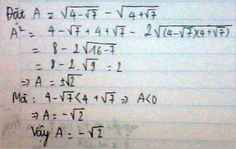 Đặt A = √4-√7 - √4+√7
A² = 4-√7 + 4+√7 - 2√(4-√7)(4+√7)
= 8 - 2√16-7
= 8 - 2.√9 = 2
⇒ A = ±√2
Mà : 4-√7 < 4+√7 ⇒ A<0
⇒ A = -√2
Vậy A = -√2